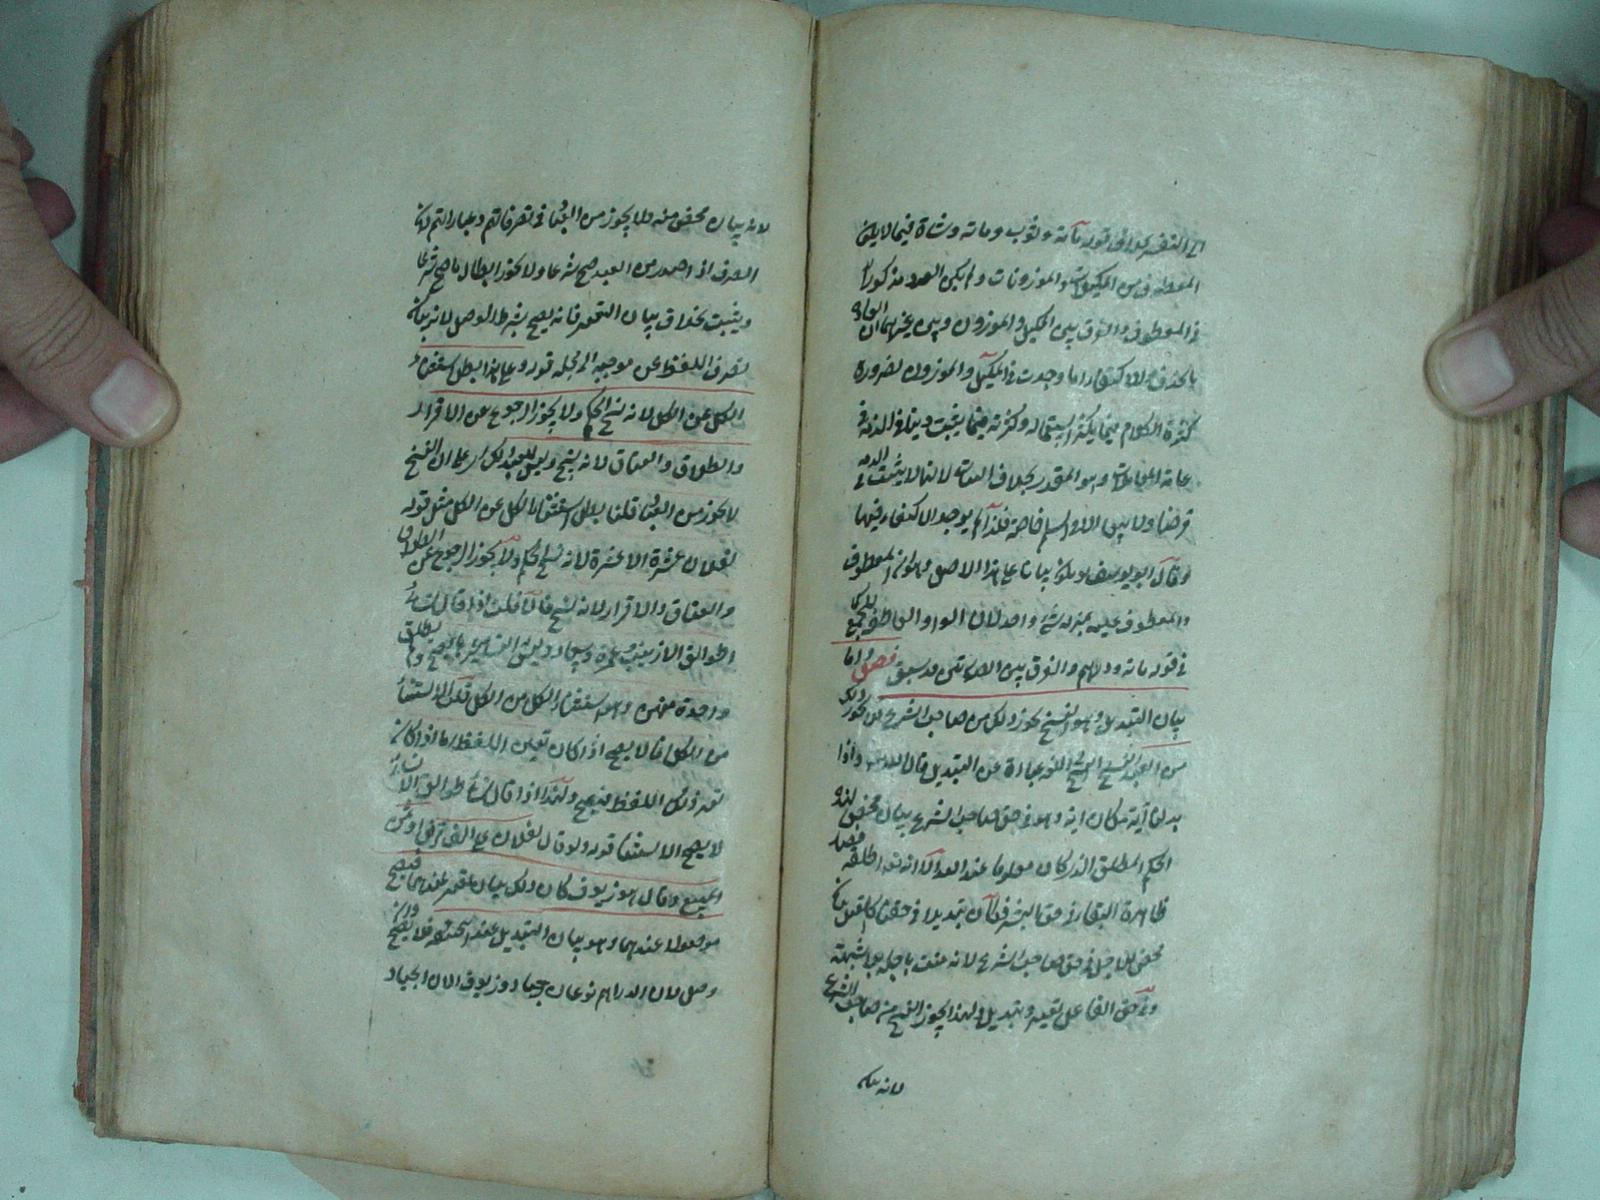 المعطوف من المكيلات والموزونات ولم يكن العدد مذكورا
في المعطوف والفرق بين المكيل والموزون وبين غيرهما ان العادة
بالحذف والاكتفاء انما وجدت في المكيل والموزون لضرورة
كثرة الكلام فيما يكثر استعماله وكثرته فيما يثبت دينا في الذمة في
عامة المعاملات وهو المقدر بخلاف الثياب لانها لا يثبت في الذمة
قرضا ولا بيعا الا السلم خاصة فلذا لم يوجد الاكتفاء فيها
وقال ابو يوسف يكون بيانا على هذا الاصل وهو ان المعطوف
والمعطوف عليه بمنزلة شيء واحد لان الواو العاطفة للجمع كما
في قوله مائة ودرهم والفرق بين المسئلتين قد سبق فصل واما
بيان التبديل وهو النسخ يجوز ذلك من صاحب الشرع ولا يجوز ذلك
من العبد النسخ في اللغة عبارة عن التبديل قال الله تعالى واذا
بدلنا آية مكان آية وهو في حق صاحب الشرع بيان محض لمدة
الحكم المطلق الذي كان معلوما عند الله الا انه اطلقه فصار
ظاهره البقاء في حق البشر فكان تبديلا في حقنا كالقتل بيان
محض للاجل في حق صاحب الشرع لانه ميت باجله بلا شبهة
وفي حق القاتل تغيير وتبديل ولهذا يجوز النسخ من صاحب الشرع
لانه بيان
لانه بيان محض منه ولا يجوز من العباد في تصرفاتهم وعباراتهم لان
التصرف اذا صدر من العبد صح شرعا ولا يجوز ابطال ما صح شرعا
ويثبت بخلاف بيان التغيير فانه يصح بشرط الوصل لانه بيان
تصرف اللفظ عن موجبه الى محله قوله وعلى هذا بطل استثناء
الكل عن الكل لانه نسخ الحكم ولا يجوز الرجوع عن الاقرار
والطلاق والعتاق لانه نسخ وليس للعبد ذلك
لا يجوز من العباد قلنا بطل استثناء الكل عن الكل مثل قوله
لفلان عشرة الا عشرة لانه نسخ الحكم ولا يجوز الرجوع عن الطلاق
والعتاق والاقرار لانه نسخ فان قلت اذا قال نسائي
طوالق الا زينب وعمرة وسعاد
واحدة منهن وهو استثناء الكل من الكل قلنا الاستثناء
من الكل انما لا يصح اذا كان بعين اللفظ اما اذا كان
بغير ذلك اللفظ فيصح ولهذا اذا قال نسائي طوالق الا نسائي
لا يصح الاستثناء قوله ولو قال لفلان علي الف قرض او ثمن
المبيع وقال هو زيوف كان ذلك بيان تغيير عندهما فيصح
موصولا عندهما وهو بيان التبديل عند ابي حنيفة فلا يصح وان
وصل لان الدراهم نوعان جياد وزيوف الا ان الجياد